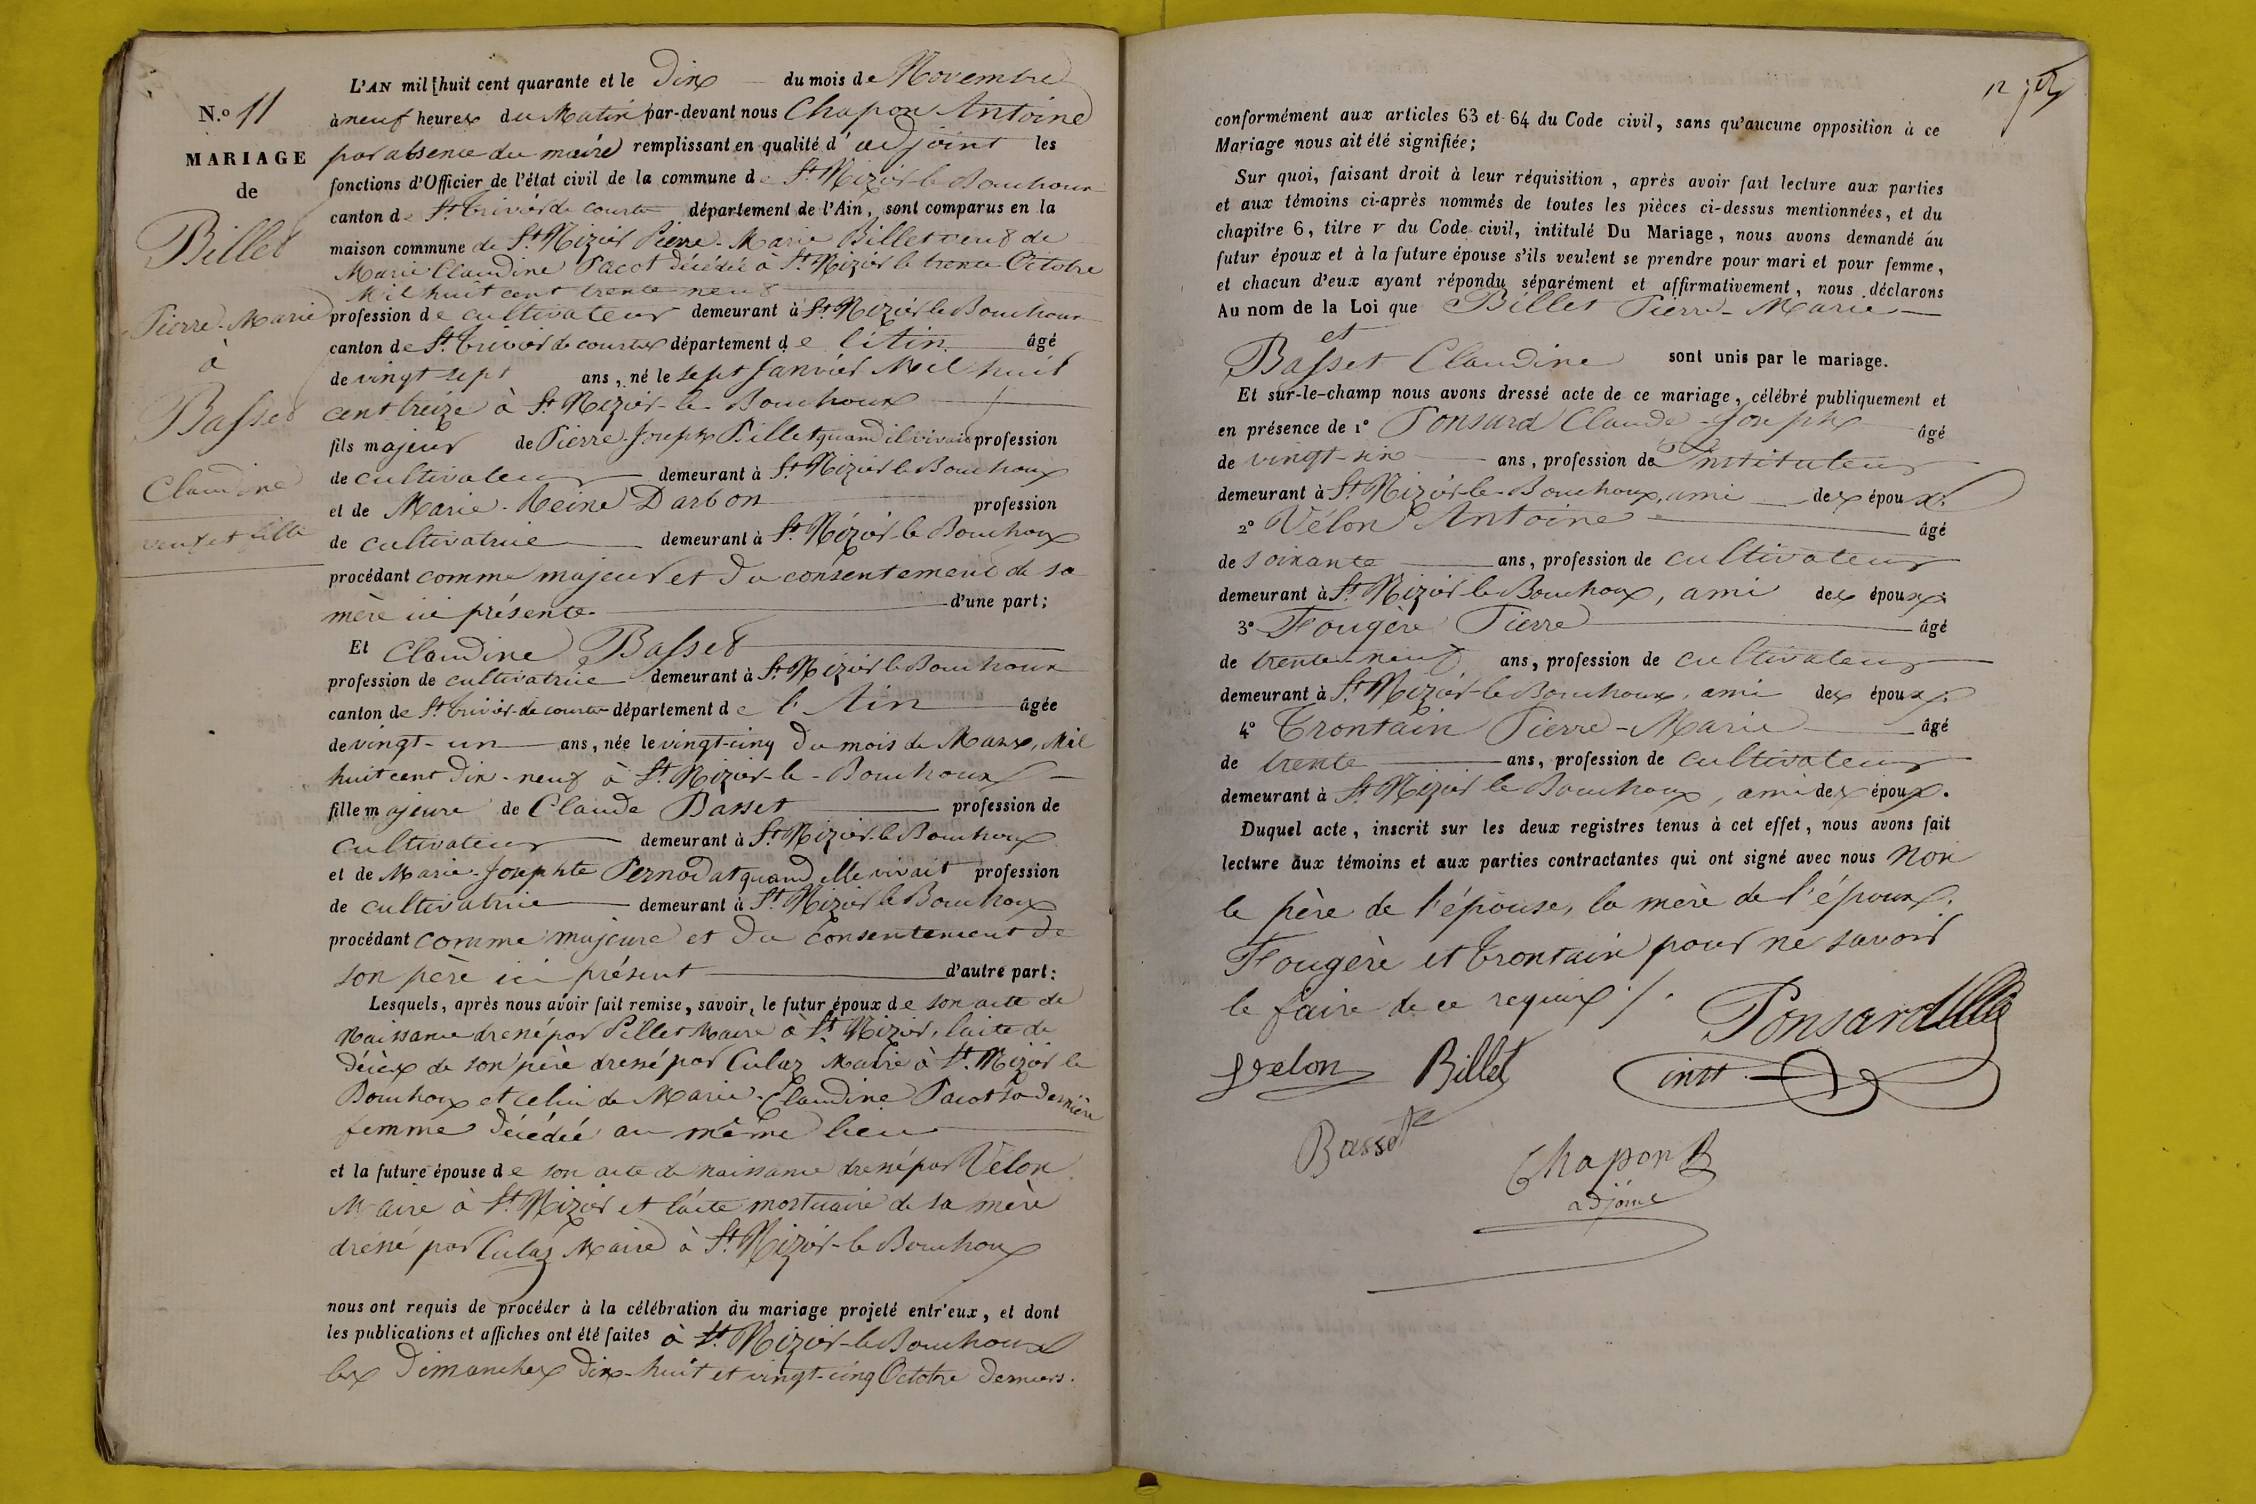 N.º 11
MARIAGE
de
Billet
Pierre-Marie
à
Basset
Claudine
veuf et fille
L'AN mil huit cent quarante et le Dix du mois de Novembre
à neuf heures du Matin par-devant nous Chapon Antoine
par absence du maire remplissant en qualité d'adjoint les
fonctions d'Officier de l'état civil de la commune de St. Nizier-le-Bouchoux
canton de St. trivier de courtes département de l'Ain, sont comparus en la
maison commune de St. Nizier Pierre-Marie Billet veuf de
Marie Claudine Pacot décédée à St. Nizier le trente Octobre
Mil huit cent trente neuf
profession de cultivateur demeurant à St. Nizier le Bouchoux
canton de St. trivier de courtes département de l'Ain âgé
de vingt sept ans, né le sept Janvier Mil huit
cent treize à St. Nizier-le-Bouchoux
fils majeur de Pierre-Joseph Billet quand il vivait profession
de cultivateur demeurant à St. Nizier le Bouchoux
et de Marie-Reine Darbon profession
de cultivatrice demeurant à St. Nizier-le Bouchoux
procédant comme majeur et du consentement de sa
mère ici présente d'une part;
Et Claudine Basset
profession de cultivatrice demeurant à St. Nizier le Bouchoux
canton de St. trivier-de courtes département de l'Ain âgée
de vingt-un ans, née le vingt-cinq du mois de Mars, Mil
huit cent dix-neuf à St. Nizier-le-Bouchoux
fille majeure de Claude Basset profession de
cultivateur demeurant à St. Nizier-le Bouchoux
et de Marie-Josephte Pernodat quand elle vivait profession
de cultivatrice demeurant à St. Nizier le Bouchoux
procédant comme majeure et du consentement de
son père ici présent d'autre part:
Lesquels, après nous avoir fait remise, savoir, le futur époux de son acte de
Naissance dressé par Pillet Maire à St. Nizier, l'acte de
décès de son père dressé par Culaz Maire à St. Nizier le
Bouchoux et celui de Marie-Claudine Pacot sa dernière
femme décédée au même lieu
et la future épouse de son acte de naissance dressé par Vélon
Maire à St. Nizier et l'acte mortuaire de sa mère
dressé par Culaz Maire à St. Nizier-le Bouchoux
nous ont requis de procéder à la célébration du mariage projeté entr'eux, et dont
les publications et affiches ont été faites à St. Nizier-le Bouchoux
les Dimanches dix-huit et vingt-cinq Octobre derniers.
12
conformément aux articles 63 et 64 du Code civil, sans qu'aucune opposition à ce
Mariage nous ait été signifiée;
Sur quoi, faisant droit à leur réquisition, après avoir fait lecture aux parties
et aux témoins ci-après nommés de toutes les pièces ci-dessus mentionnées, et du
chapitre 6, titre v du Code civil, intitulé Du Mariage, nous avons demandé au
futur époux et à la future épouse s'ils veulent se prendre pour mari et pour femme,
et chacun d'eux ayant répondu séparément et affirmativement, nous déclarons
Au nom de la Loi que Billet Pierre-Marie
et
Basset Claudine sont unis par le mariage.
Et sur-le-champ nous avons dressé acte de ce mariage, célébré publiquement et
en présence de 1º Ponsard Claude-Joseph âgé
de vingt-six ans, profession de Instituteur
demeurant à St. Nizier-le-Bouchoux, ami des époux.
2º Vélon Antoine âgé
de soixante ans, profession de cultivateur
demeurant à St. Nizier le Bouchoux, ami des époux.
3º Fougère Pierre âgé
de trente-neuf ans, profession de cultivateur
demeurant à St. Nizier-le Bouchoux, ami des époux.
4º Trontain Pierre-Marie âgé
de trente ans, profession de cultivateur
demeurant à St. Nizier le Bouchoux, ami des époux.
Duquel acte, inscrit sur les deux registres tenus à cet effet, nous avons fait
lecture aux témoins et aux parties contractantes qui ont signé avec nous non
le père de l'épouse, la mère de l'époux,
Fougère et trontain pour ne savoir
le faire de ce requis ./.
Ponsard
inst
Velon Billet
Basset
Chapon
adjoint